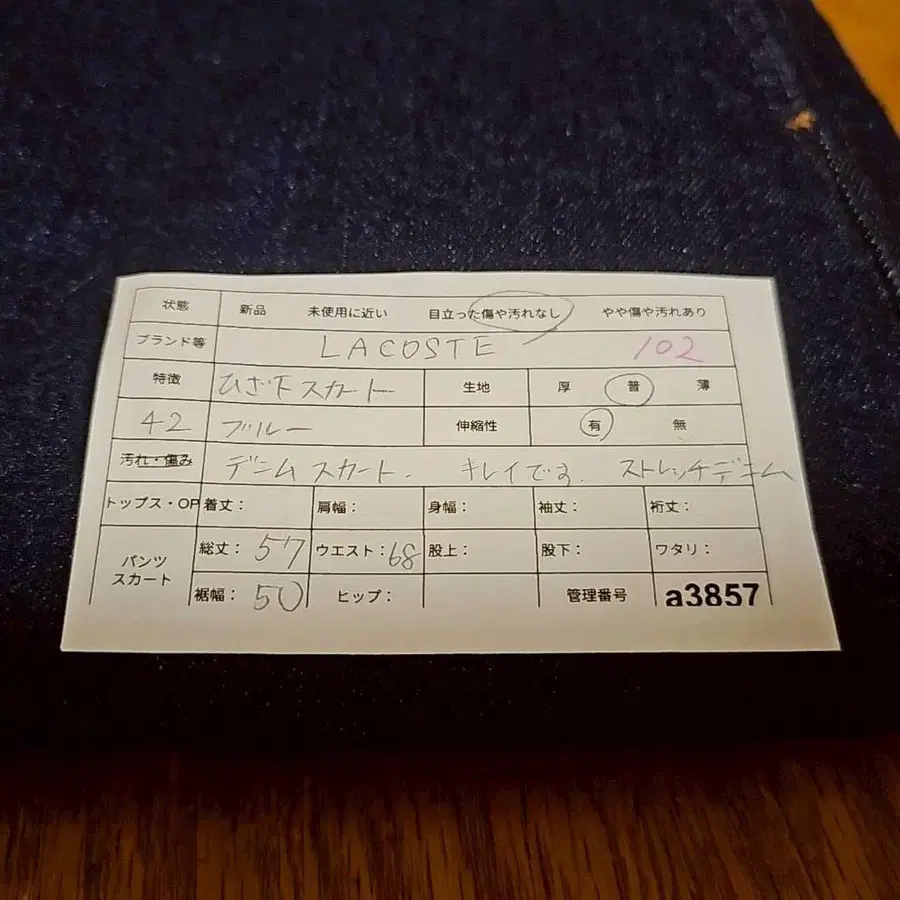 状態 新品 未使用に近い 目立った傷や汚れなし やや傷や汚れあり
ブランド等 LACOSTE 102
特徴 ひざ下スカート 生地 厚 普 薄
42 ブルー 伸縮性 有 無
汚れ・傷み デニムスカート. キレイです. ストレッチデニム
トップス・OP 着丈: 肩幅: 身幅: 袖丈: 裄丈:
パンツ スカート 総丈: 57 ウエスト: 68 股上: 股下: ワタリ:
裾幅: 50 ヒップ: 管理番号 a3857